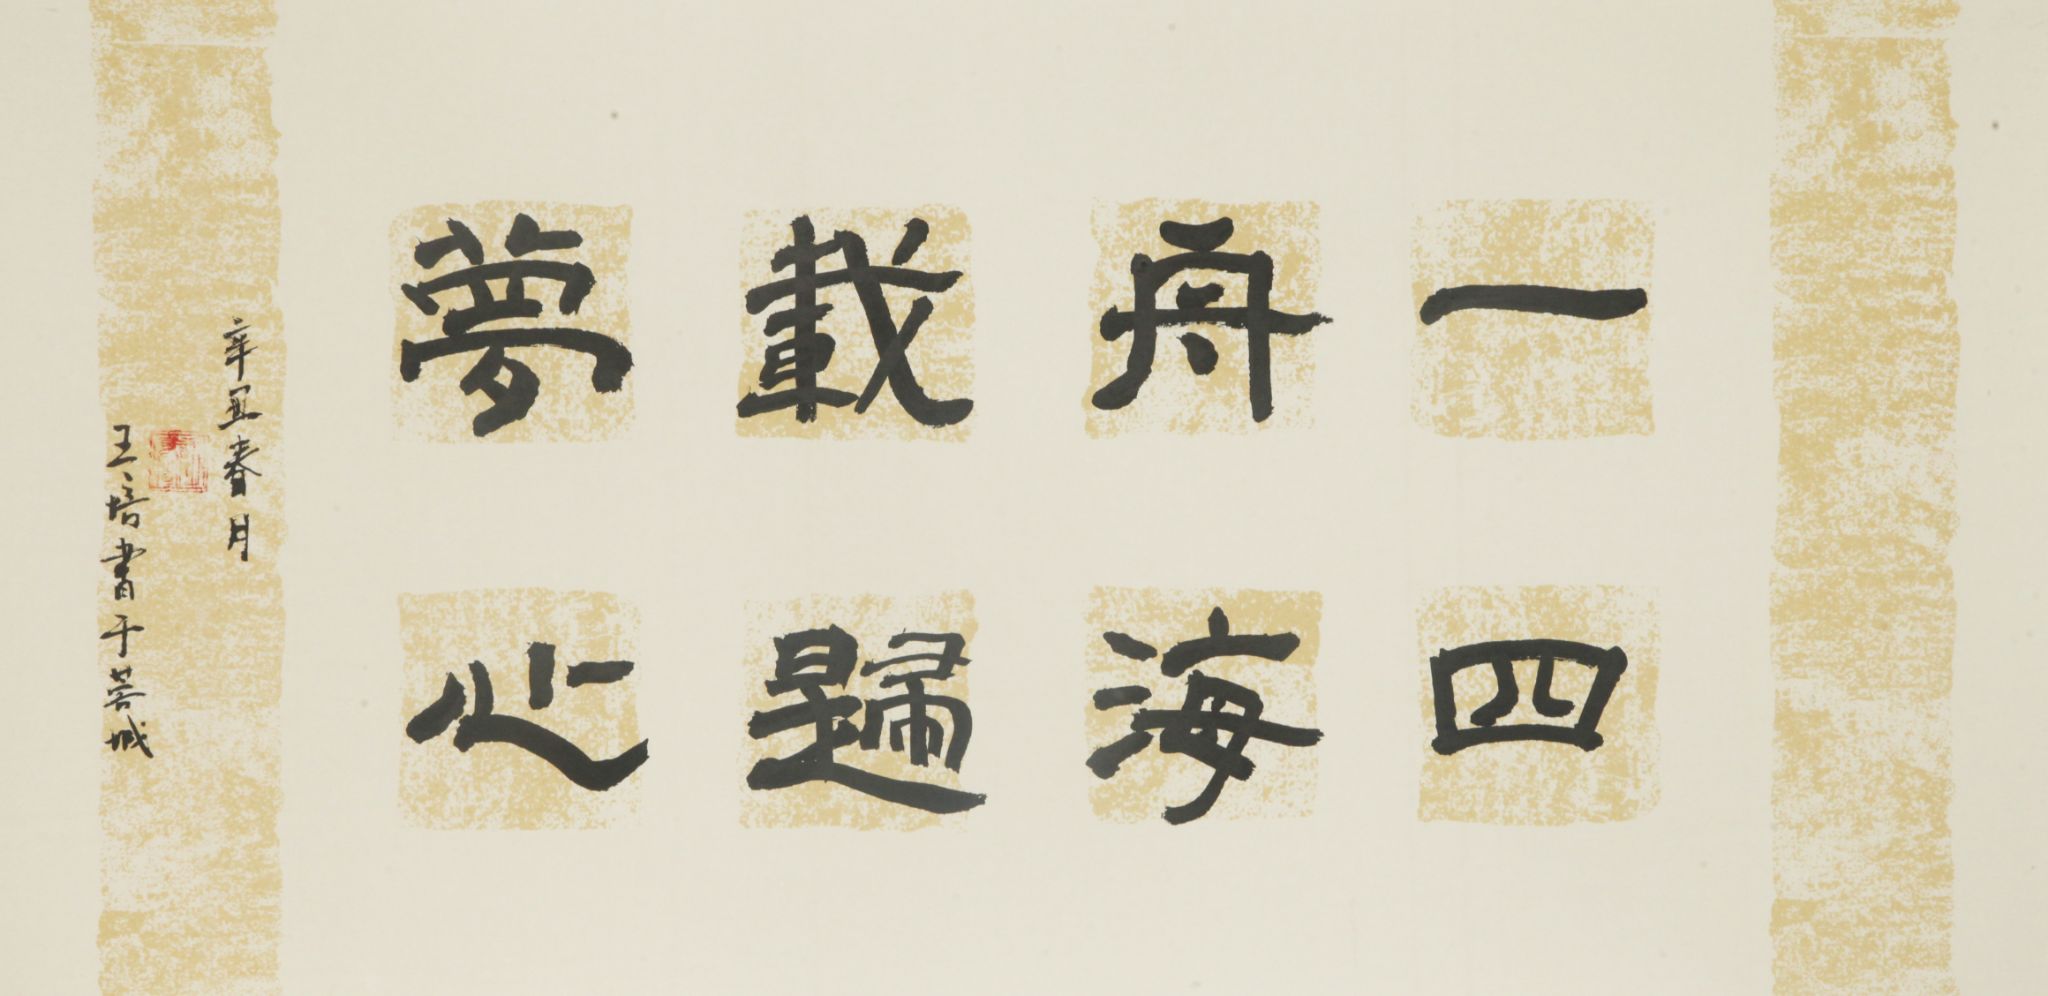 一舟載夢
四海歸心
辛丑春月
王培書于莒城